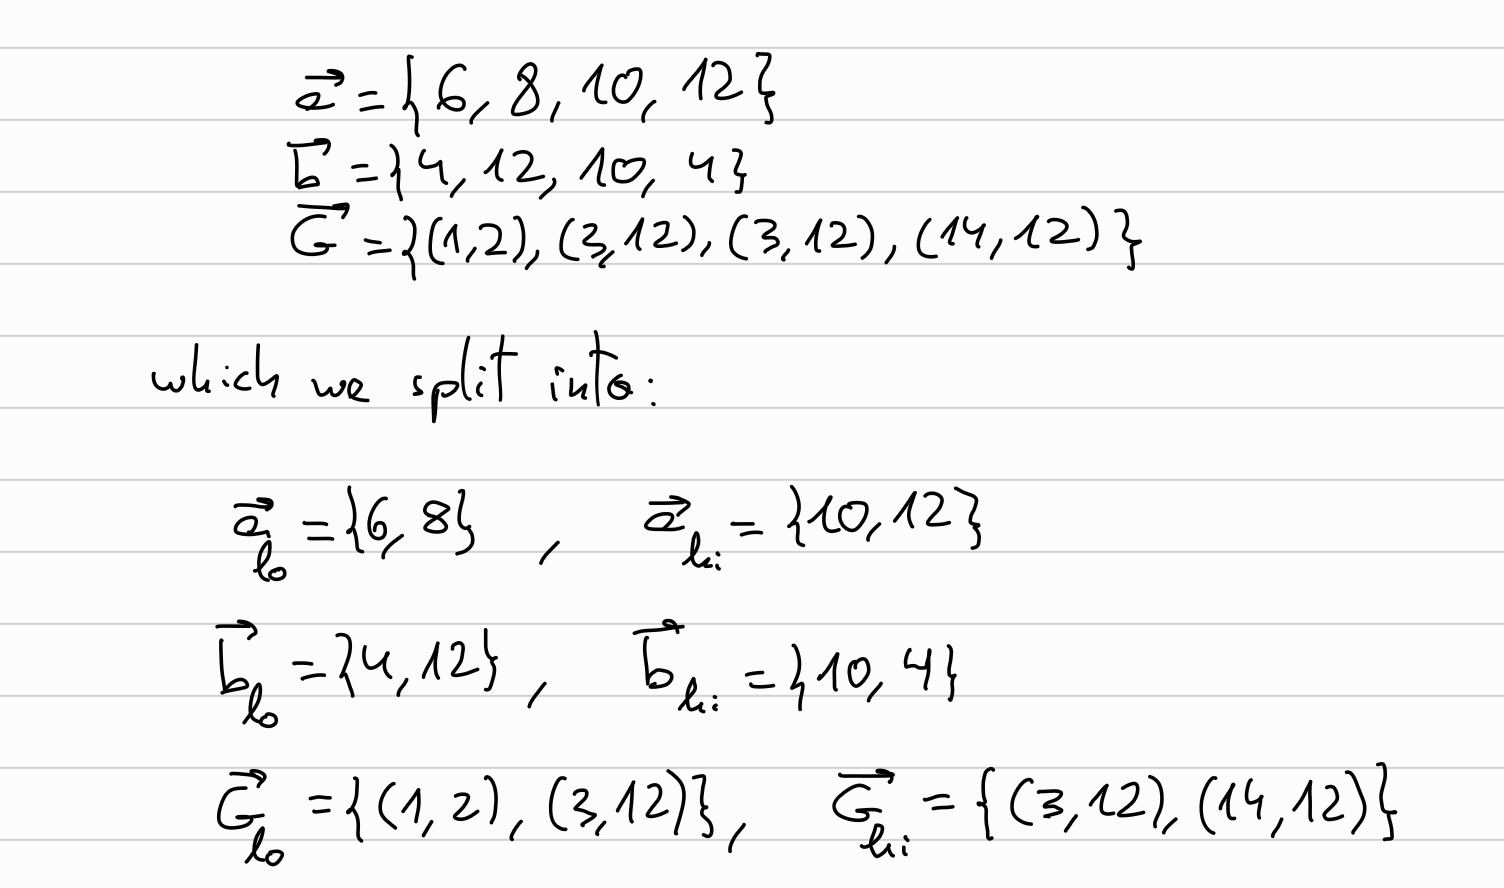 a⃗ = {6, 8, 10, 12}
b⃗ = {4, 12, 10, 4}
G⃗ = {(1,2), (3,12), (3,12), (14,12)}
which we split into:
a⃗_lo = {6, 8} , a⃗_hi = {10, 12}
b⃗_lo = {4, 12} , b⃗_hi = {10, 4}
G⃗_lo = {(1, 2), (3,12)} , G⃗_hi = {(3,12), (14,12)}